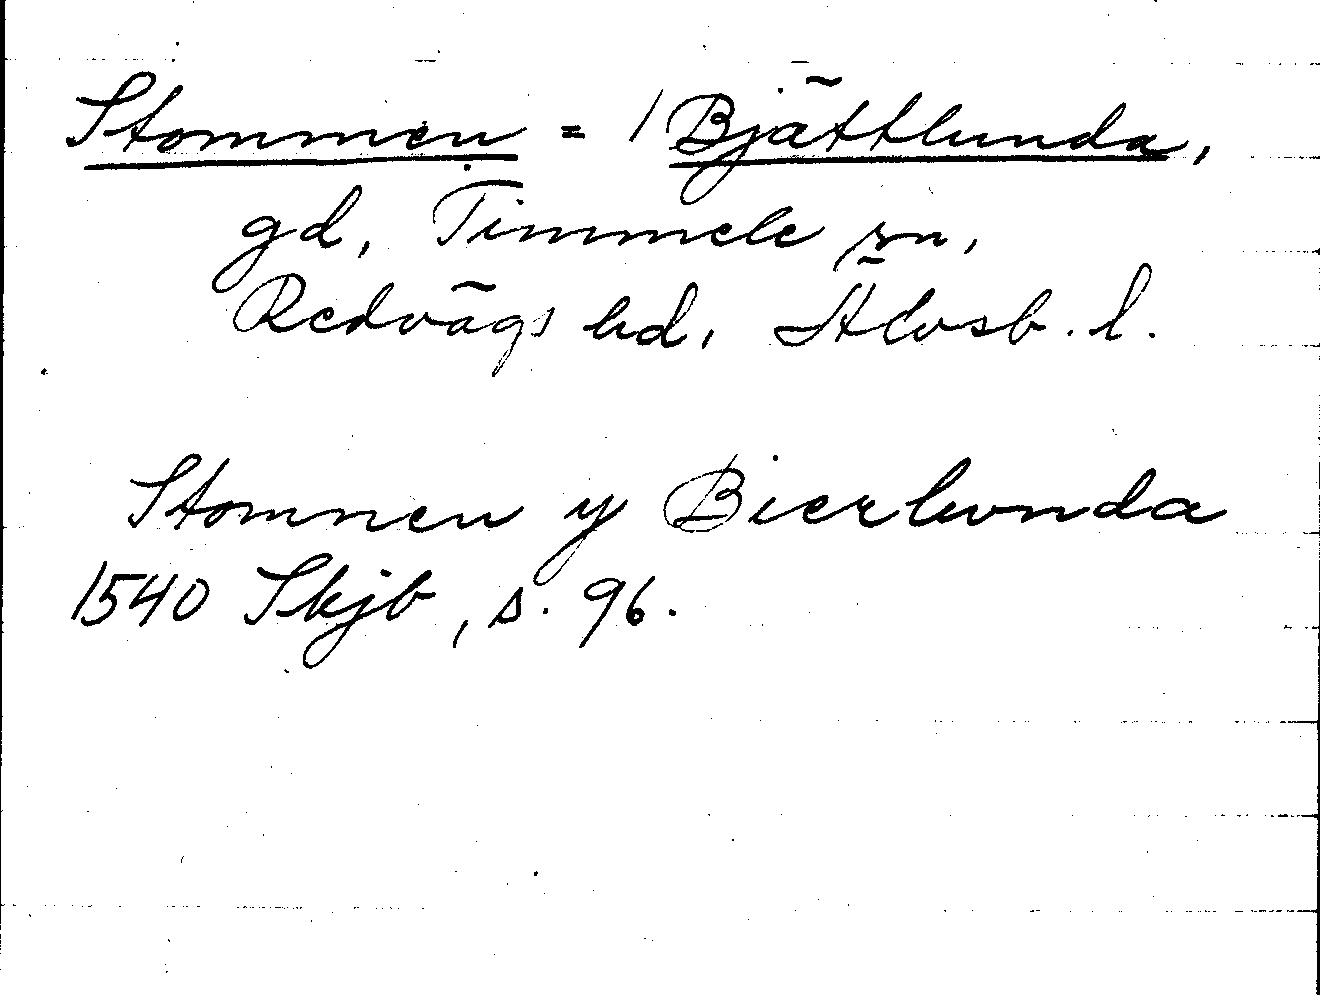 Stommen = 1 Bjättlunda,
gd, Timmele sn,
Redvägs hd, Älvsb. l.
Stomnen y Bierlunda
1540 Skjb, s. 96.